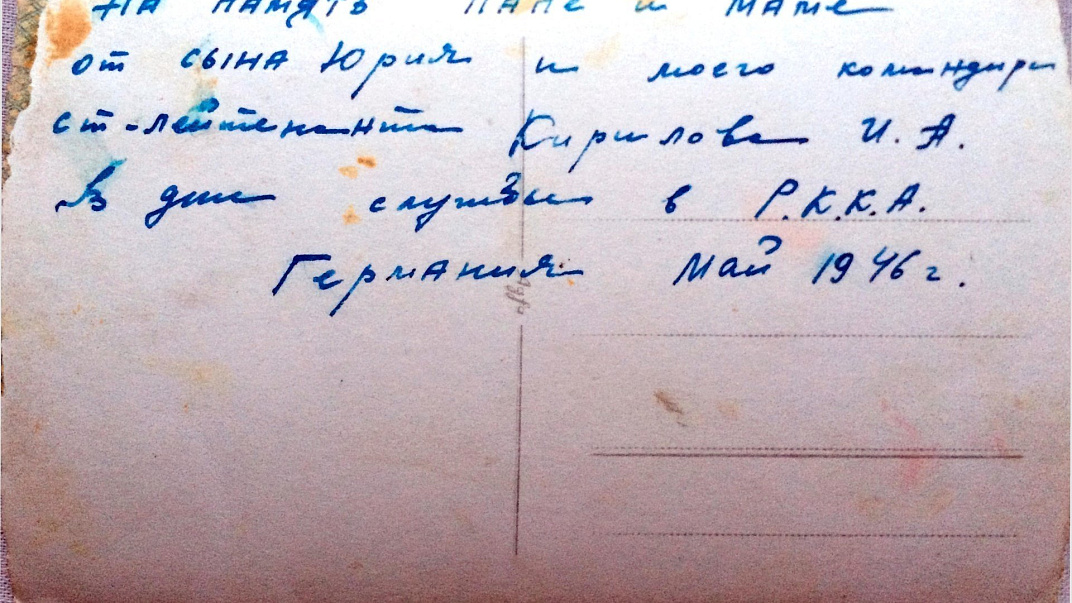 На память папе и маме
от сына Юрия и моего командира
ст-лейтенанта Кирилова И.А.
В дни службы в Р.К.К.А.
Германия Май 1946 г.